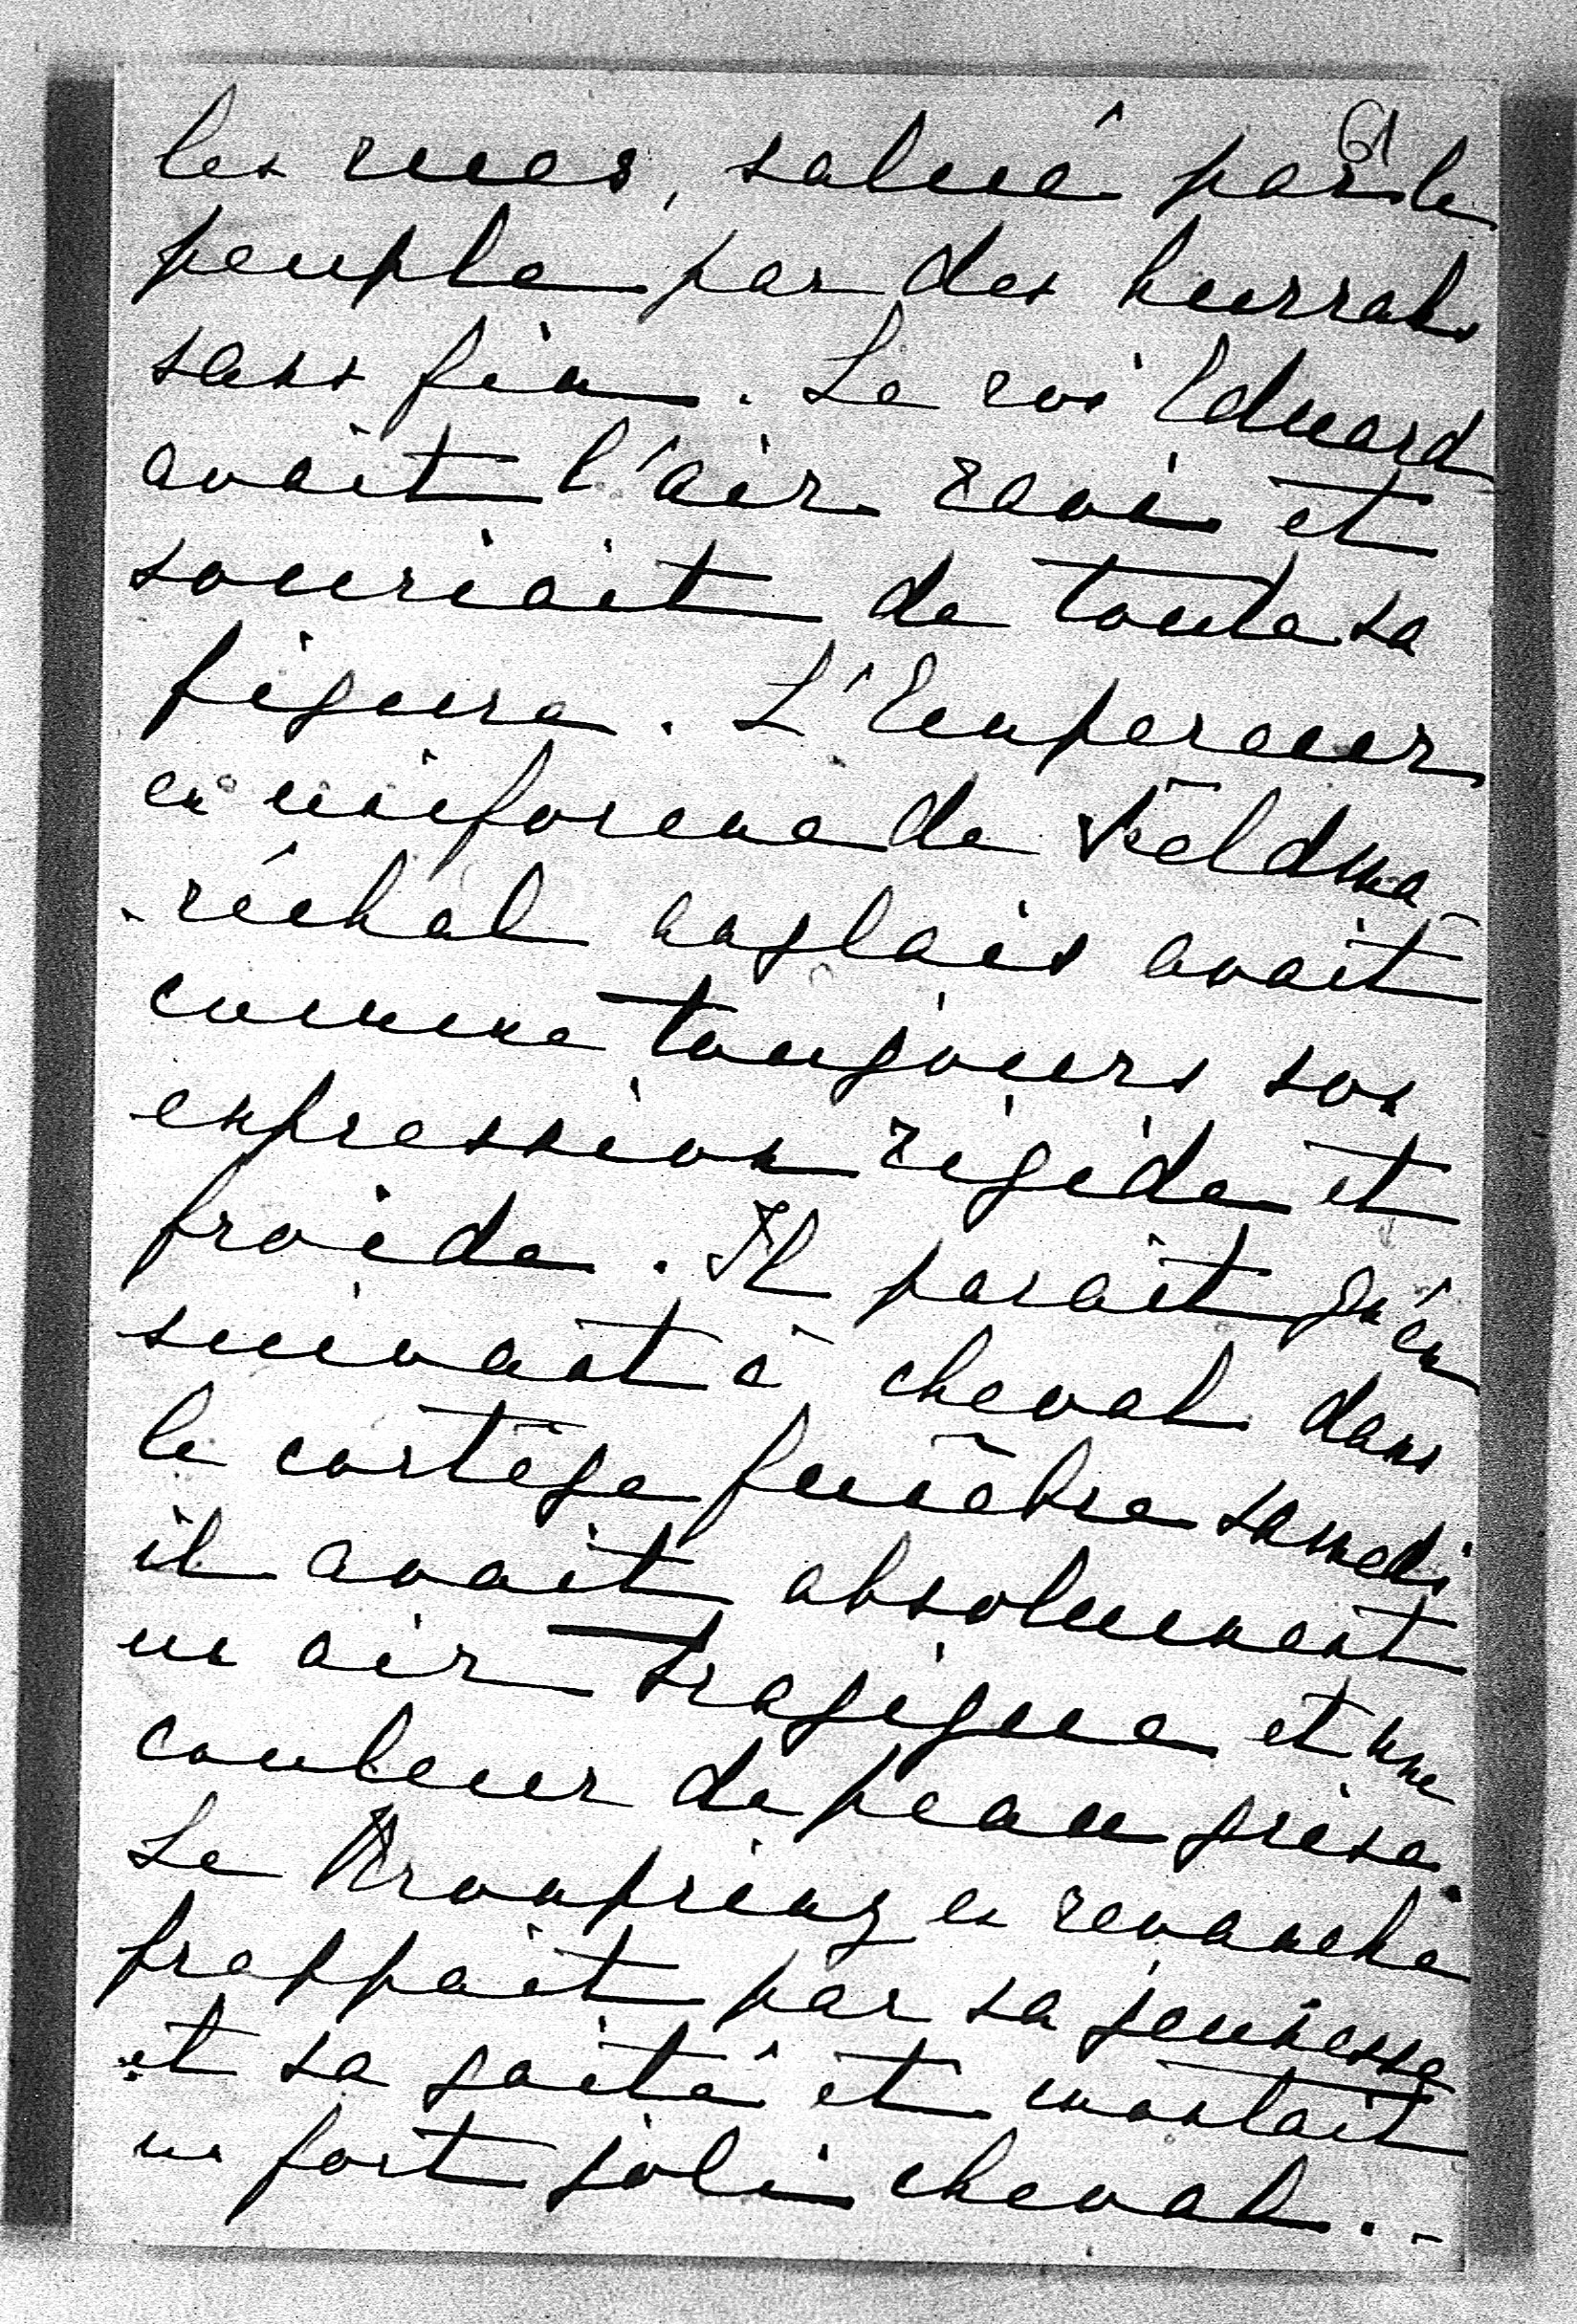 61
les rues, salué par le
peuple par des hurrahs
sans fin. Le roi Eduard
avait l'air ravi et
souriait de toute sa
figure. L'Empereur
en uniforme de Feldma-
-réchal anglais avait
comme toujours son
expression rigide et
froide. Il parait qu'en
suivant à cheval dans
le cortège funèbre samedi
il avait absolument
un air tragique et une
couleur de peau grise.
Le Kronprinz en revanche
frappait par sa jeunesse
et sa gaité et montait
un fort joli cheval. -